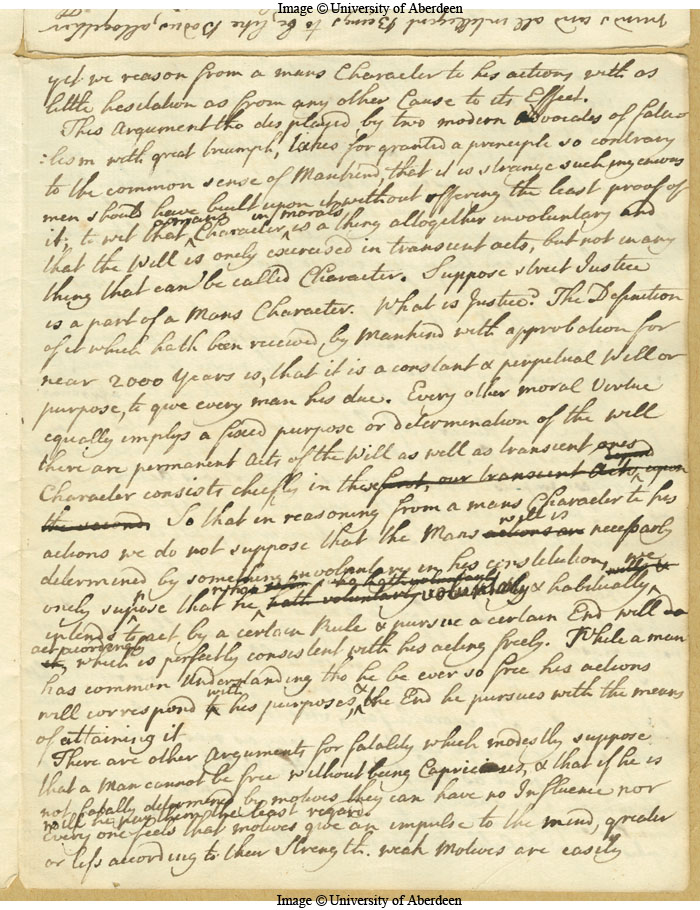 Image © University of Aberdeen
minds and all intelligent Beings to be like Bodies, altogether
yet we reason from a mans Character to his actions with as
little hesitation as from any other Cause to its Effect.
This Argument tho displayed by two modern Advocates of fata
:lism with great triumph, takes for granted a principle so contrary
to the common sense of Mankind, that it is strange such ingenious
men should have built upon it, without offering the least proof of
it; to wit that Character in morals is a thing altogether involuntary and
that the Will is onely exercised in transient acts, but not in any
thing that can be called Character. Suppose strict Justice
is a part of a Mans Character. What is Justice? The Definition
of it which hath been received by Mankind with approbation for
near 2000 Years is, that it is a constant & perpetual Will or
purpose, to give every man his due. Every other moral Virtue
equally implys a fixed purpose or determination of the will
there are permanent acts of the Will as well as transient ones
Character consists cheefly in the first, our transient acts, upon
the second. So that in reasoning from a mans Character to his
actions we do not suppose that the Mans actions are will is necessarly
determined by something involuntary in his constitution, we
onely supose that he hath voluntarly voluntarly & habitually
intends to act by a certain Rule & pursue a certain End will do
it, act accordingly which is perfectly consistent with his acting freely. While a man
has common Understanding tho he be ever so free his actions
will correspond to with his purposes, & the End he pursues with the means
of attaining it
There are other arguments for fatality which modestly suppose
that a Man cannot be free without being Capricious, & that if he is
not fatally determined by motives they can have no Influence nor
will he pay them the least regard.
every one feels that motives give an impulse to the mind, greater
or less according to their Strength. weak Motives are easily
Image © University of Aberdeen